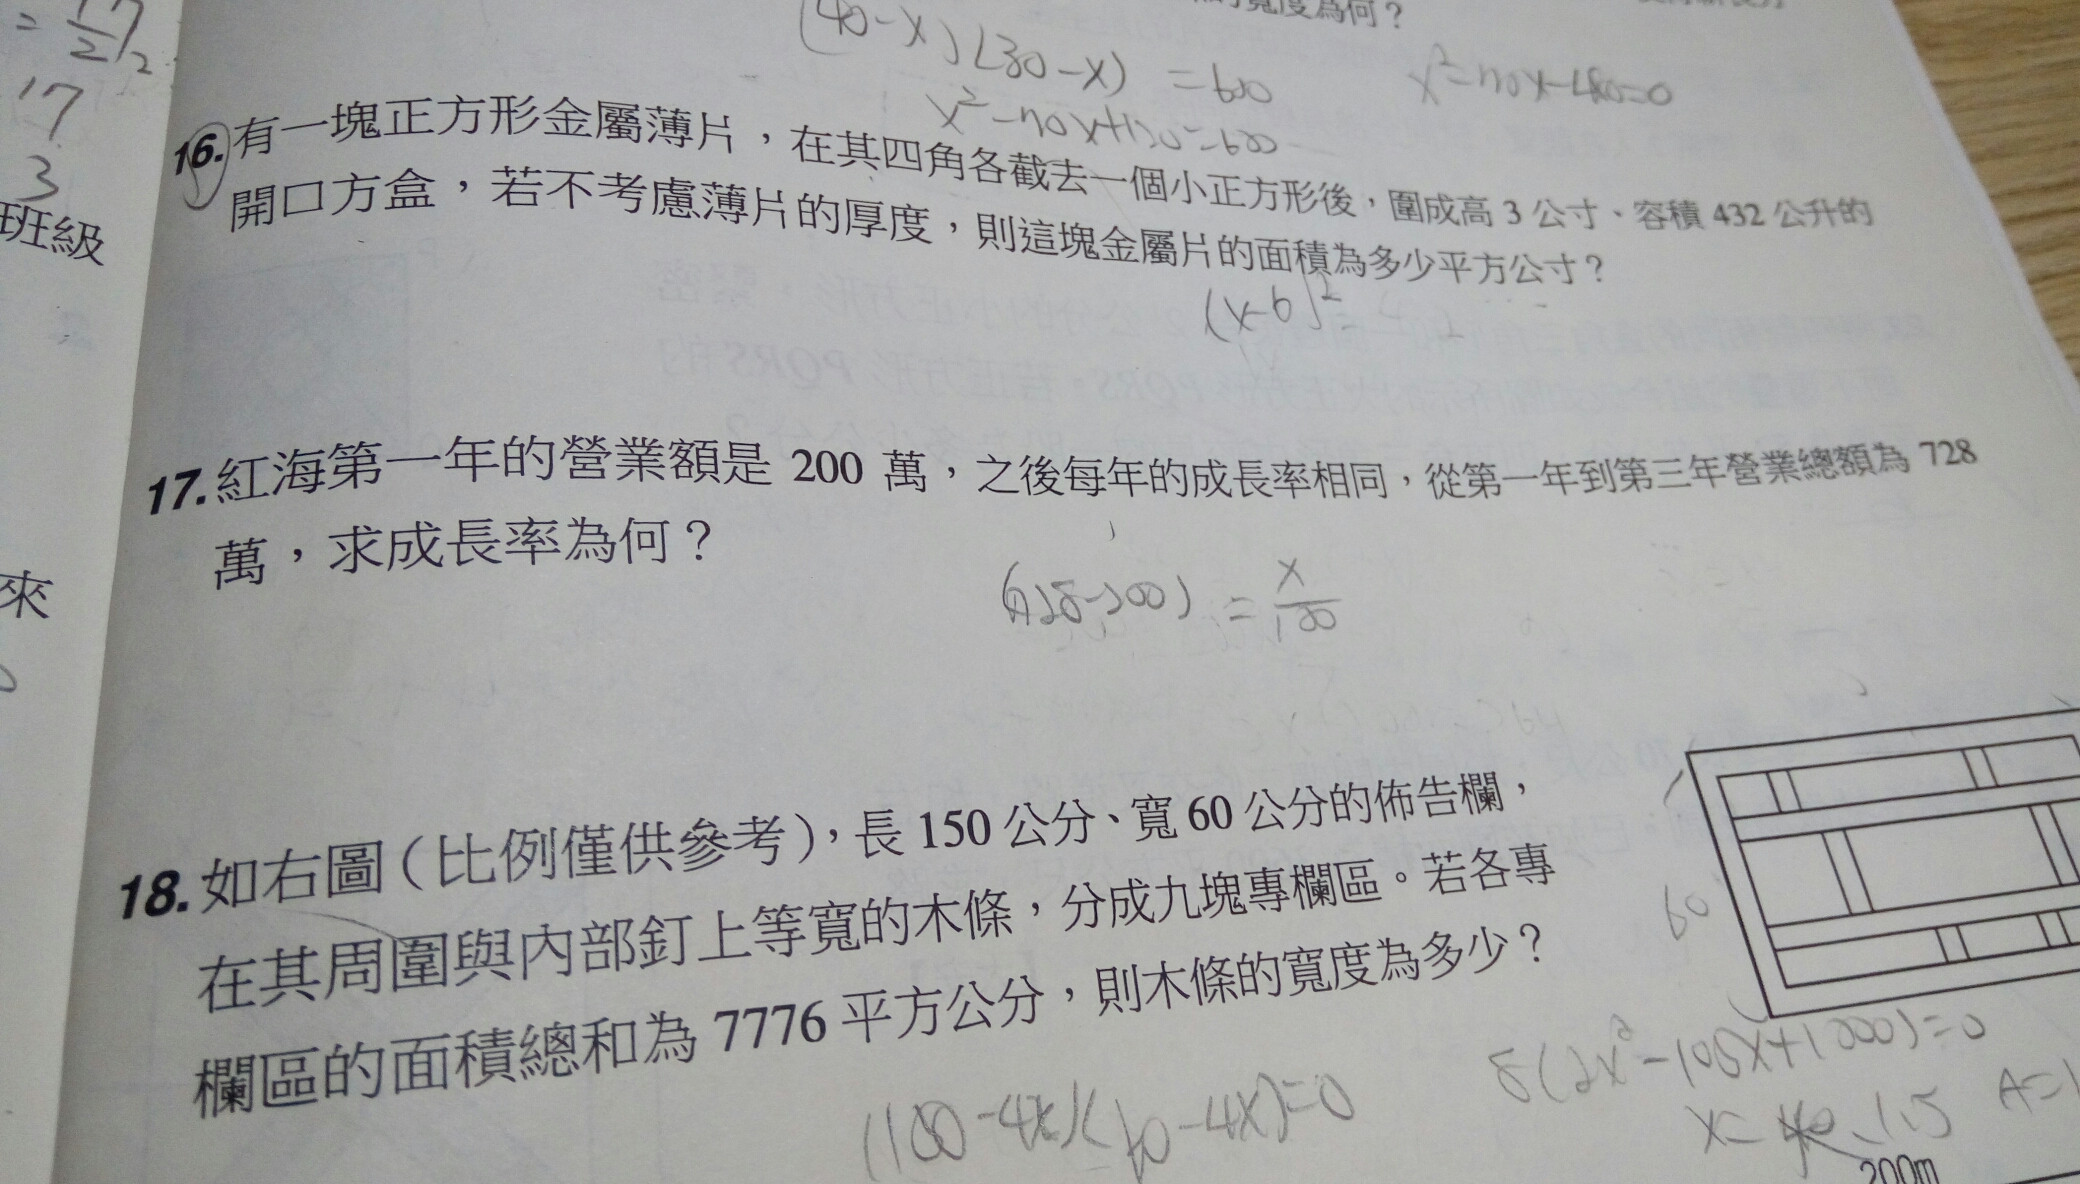 17
3
班級
來
寬度為何？
(40-x)(30-x) = 600
x²-70x+120=600
16. 有一塊正方形金屬薄片，在其四角各截去一個小正方形後，圍成高 3 公寸、容積 432 公升的
開口方盒，若不考慮薄片的厚度，則這塊金屬片的面積為多少平方公寸？
(x-6)²=
17. 紅海第一年的營業額是 200 萬，之後每年的成長率相同，從第一年到第三年營業總額為 728
萬，求成長率為何？
(728-200) = x/100
18. 如右圖（比例僅供參考），長 150 公分、寬 60 公分的佈告欄，
在其周圍與內部釘上等寬的木條，分成九塊專欄區。若各專
欄區的面積總和為 7776 平方公分，則木條的寬度為多少？
60
200m